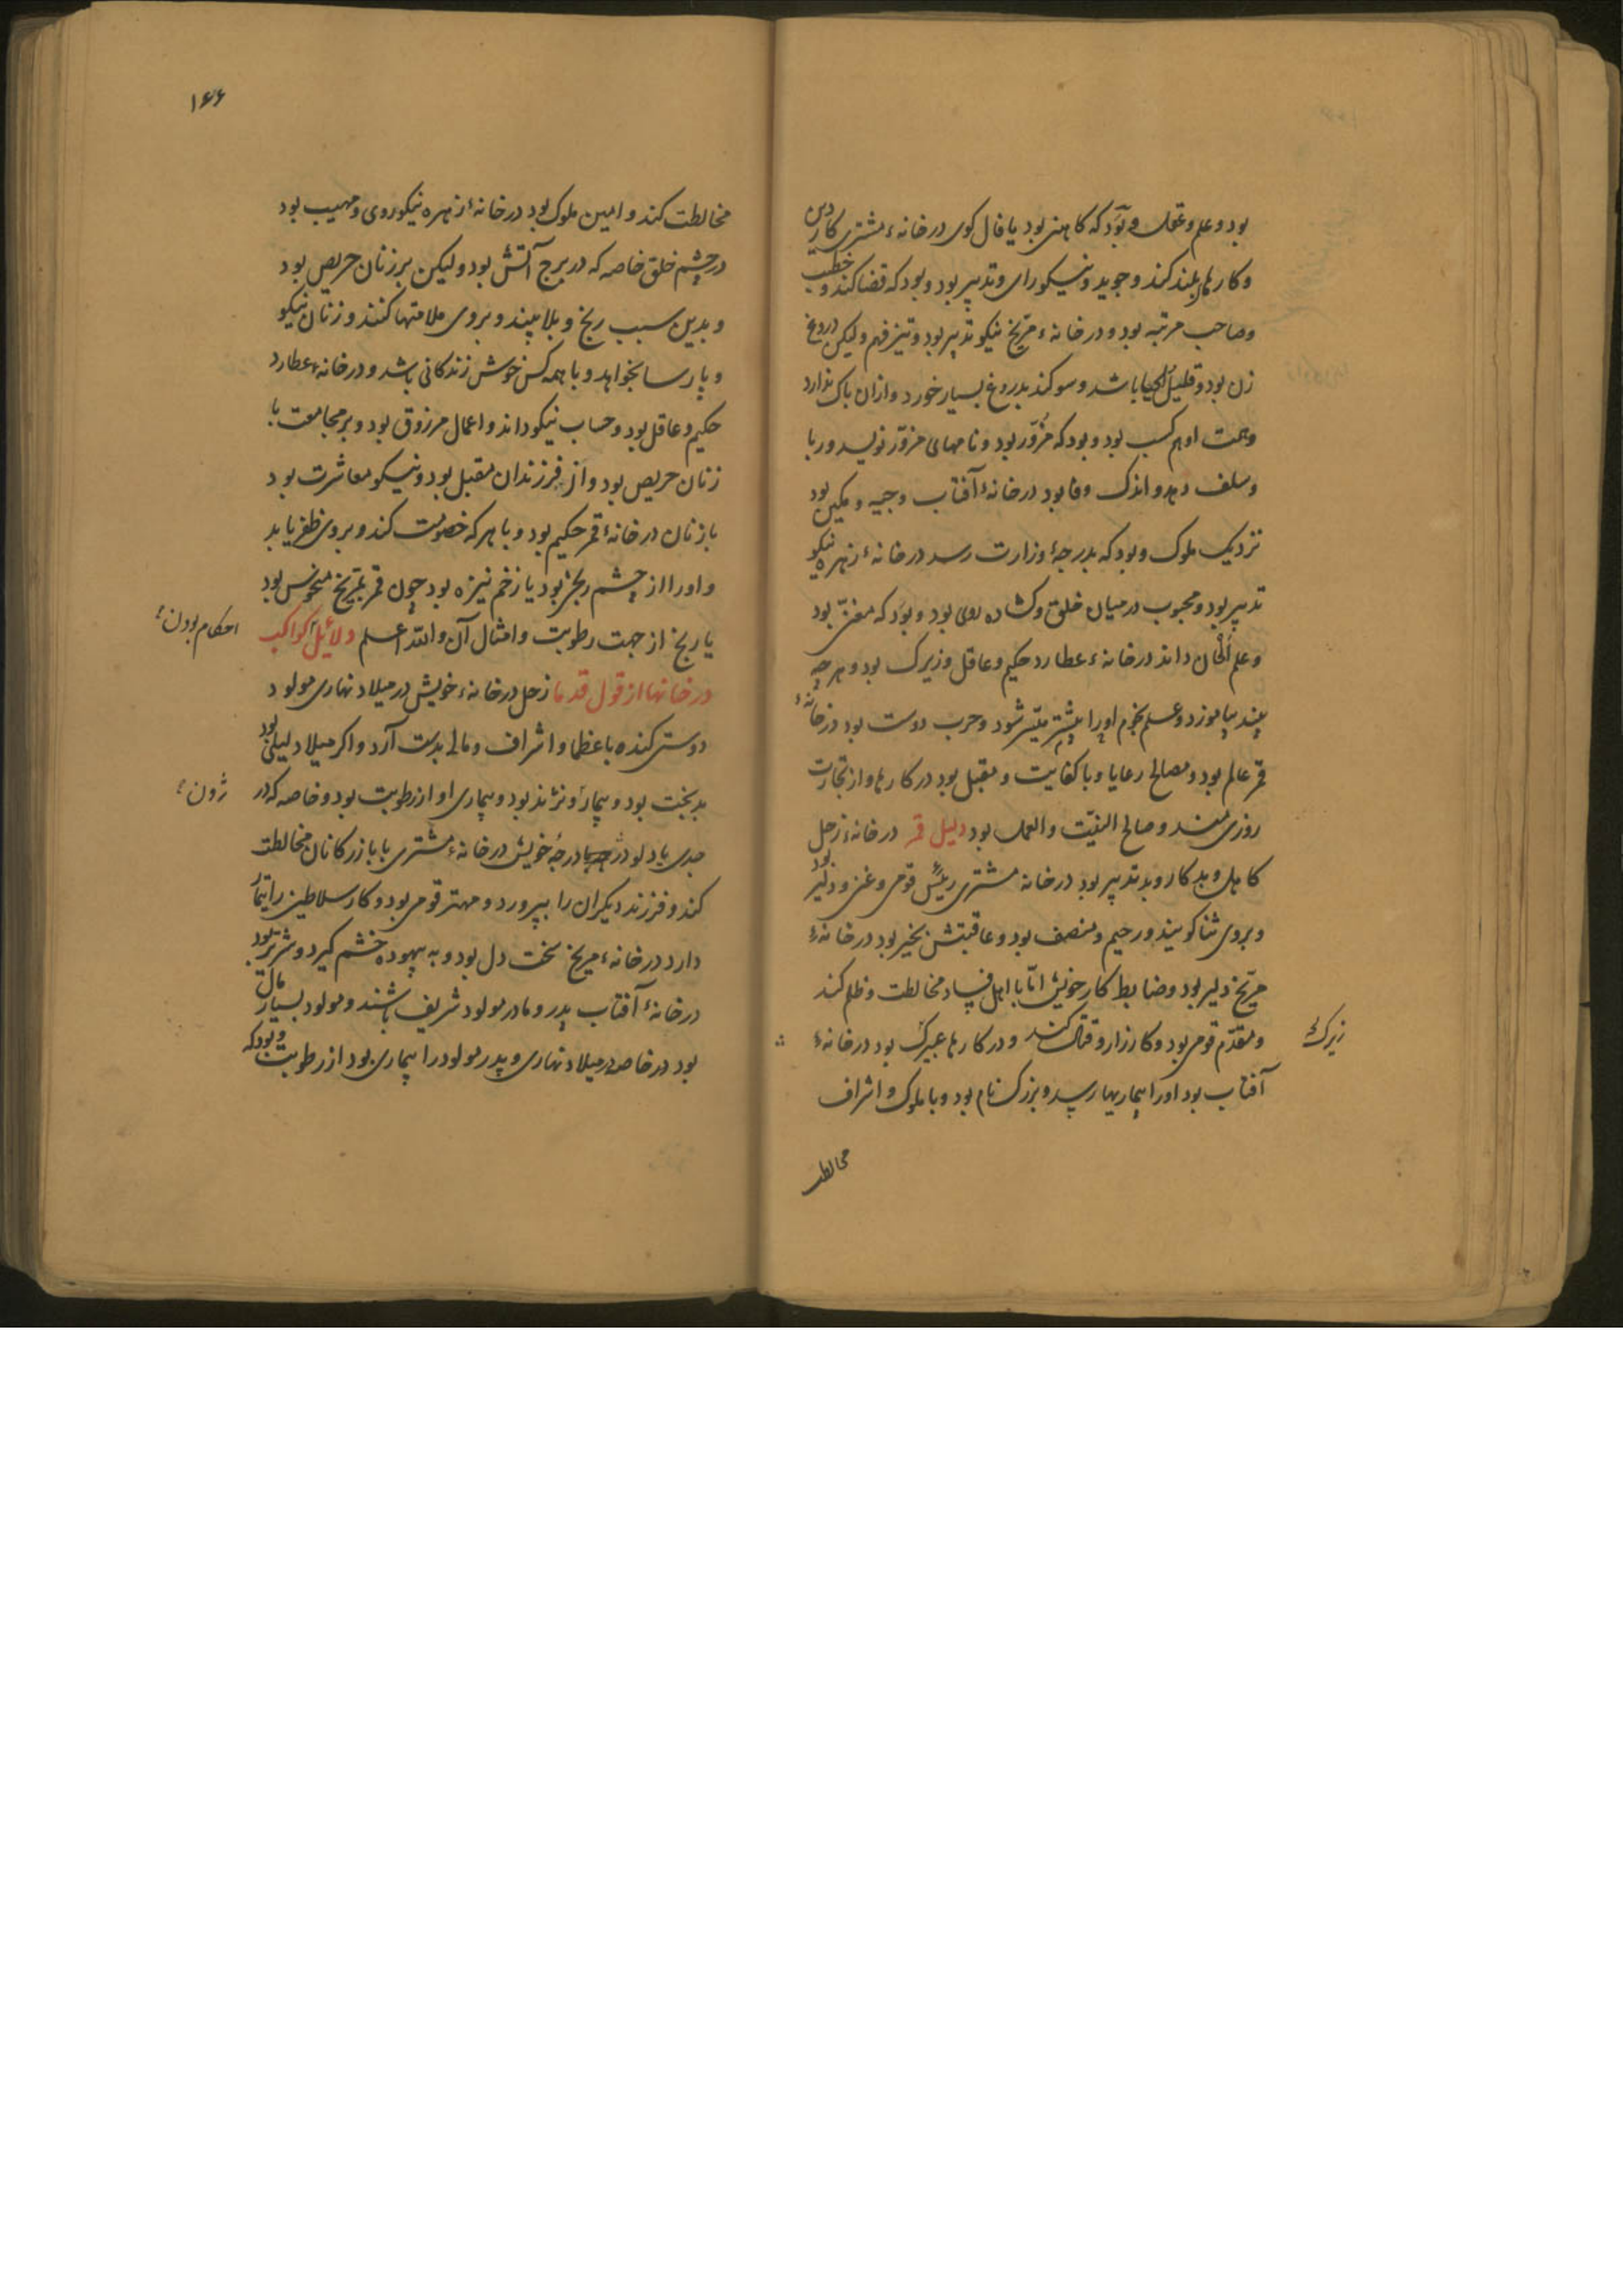 بود و علم و عقل و بود که کاهنی بود یا فال کوی در خانهٔ مشتری کار دین
و کارهای بلند کند و جوید و نیکو رای و تدبیر بود و بود که قضا کند و خطیب
و صاحب مرتبه بود و در خانهٔ مریخ نیکو تدبیر بود و تیز فهم و لیکن دروغ
زن بود و قلیل الحیا باشد و سوکند بدروغ بسیار خورد و ازان باک ندارد
و همت او هم کسب بود و بود که مزوّر بود و نامهای مزوّر نویسد و ربا
و سلف دهد و اندک وفا بود در خانهٔ آفتاب وجیه و مکین بود
نزدیک ملوک و بود که بدرجهٔ وزارت رسد در خانهٔ زهره نیکو
تدبیر بود و محبوب در میان خلق و کشاده روی بود و بود که مغنّی بود
و علم الحان داند در خانهٔ عطارد حکیم و عاقل و زیرک بود و هرچه
بیند بیاموزد و علم نجوم او را بیشتر میسّر شود و حرب دوست بود در خانهٔ
قمر عالم بود و مصالح رعایا و با کفایت و مقبل بود در کارها و از تجارت
روزی مند و صالح النیّت و العمل بود دلیل قمر در خانهٔ زحل
کاهل و بد کار و بد تدبیر بود در خانه مشتری رئیس قومی و غنی و دلیر بود
و بر وی ثنا کویند و رحیم و منصف بود و عاقبتش بخیر بود در خانهٔ
مریخ دلیر بود و ضابط کار خویش امّا با اهل فساد مخالطت و ظلم کند
و مقدّم قومی بود و کارزار و قتال کند و در کارها عبیرک بود در خانهٔ
زیرک
آفتاب بود او را بیماریها رسد و بزرک نام بود و با ملوک و اشراف
مخالطت
۱۶۶
مخالطت کند و امین ملوک بود در خانهٔ زهره نیکو روی و مهیب بود
در چشم خلق خاصه که در برج آتش بود و لیکن بر زنان حریص بود
و بدین سبب رنج و بلا بیند و بر وی ملامتها کنند و زنان نیکو
و پارسا بخواهد و با همه کس خوش زندکانی باشد و در خانهٔ عطارد
حکیم و عاقل بود و حساب نیکو داند و اعمال مرزوق بود و بر مجامعت با
زنان حریص بود و از فرزندان مقبل بود و نیکو معاشرت بود
با زنان در خانهٔ قمر حکیم بود و با هر که خصومت کند و بر وی ظفر یابد
و او را از چشم رنج بود یا زخم نیزه بود چون قمر بمریخ منحوس بود
یا رنج از جهت رطوبت و امثال آن و اللّه اعلم دلائل کواکب
احکام بودن
در خانها از قول قدما زحل در خانهٔ خویش در میلاد نهاری مولود
دوستی کننده با عظما و اشراف و مالی بدست آرد و اکر میلاد لیلی بود
بدبخت بود و بیمار و نژند بود و بیماری او از رطوبت بود و خاصه که در
ژون
جدی یا دلو در درجهٔ خویش در خانهٔ مشتری با بازرکانان مخالطت
کند و فرزند دیکران را بپرورد و مهتر قومی بود و کار سلاطین را تیمار
دارد در خانهٔ مریخ سخت دل بود و به بیهوده خشم کیرد و شریر بود
در خانهٔ آفتاب پدر و مادر مولود شریف باشند و مولود بسیار مال
بود در خاصه در میلاد نهاری و پدر مولود را بیماری بود از رطوبت و بود که